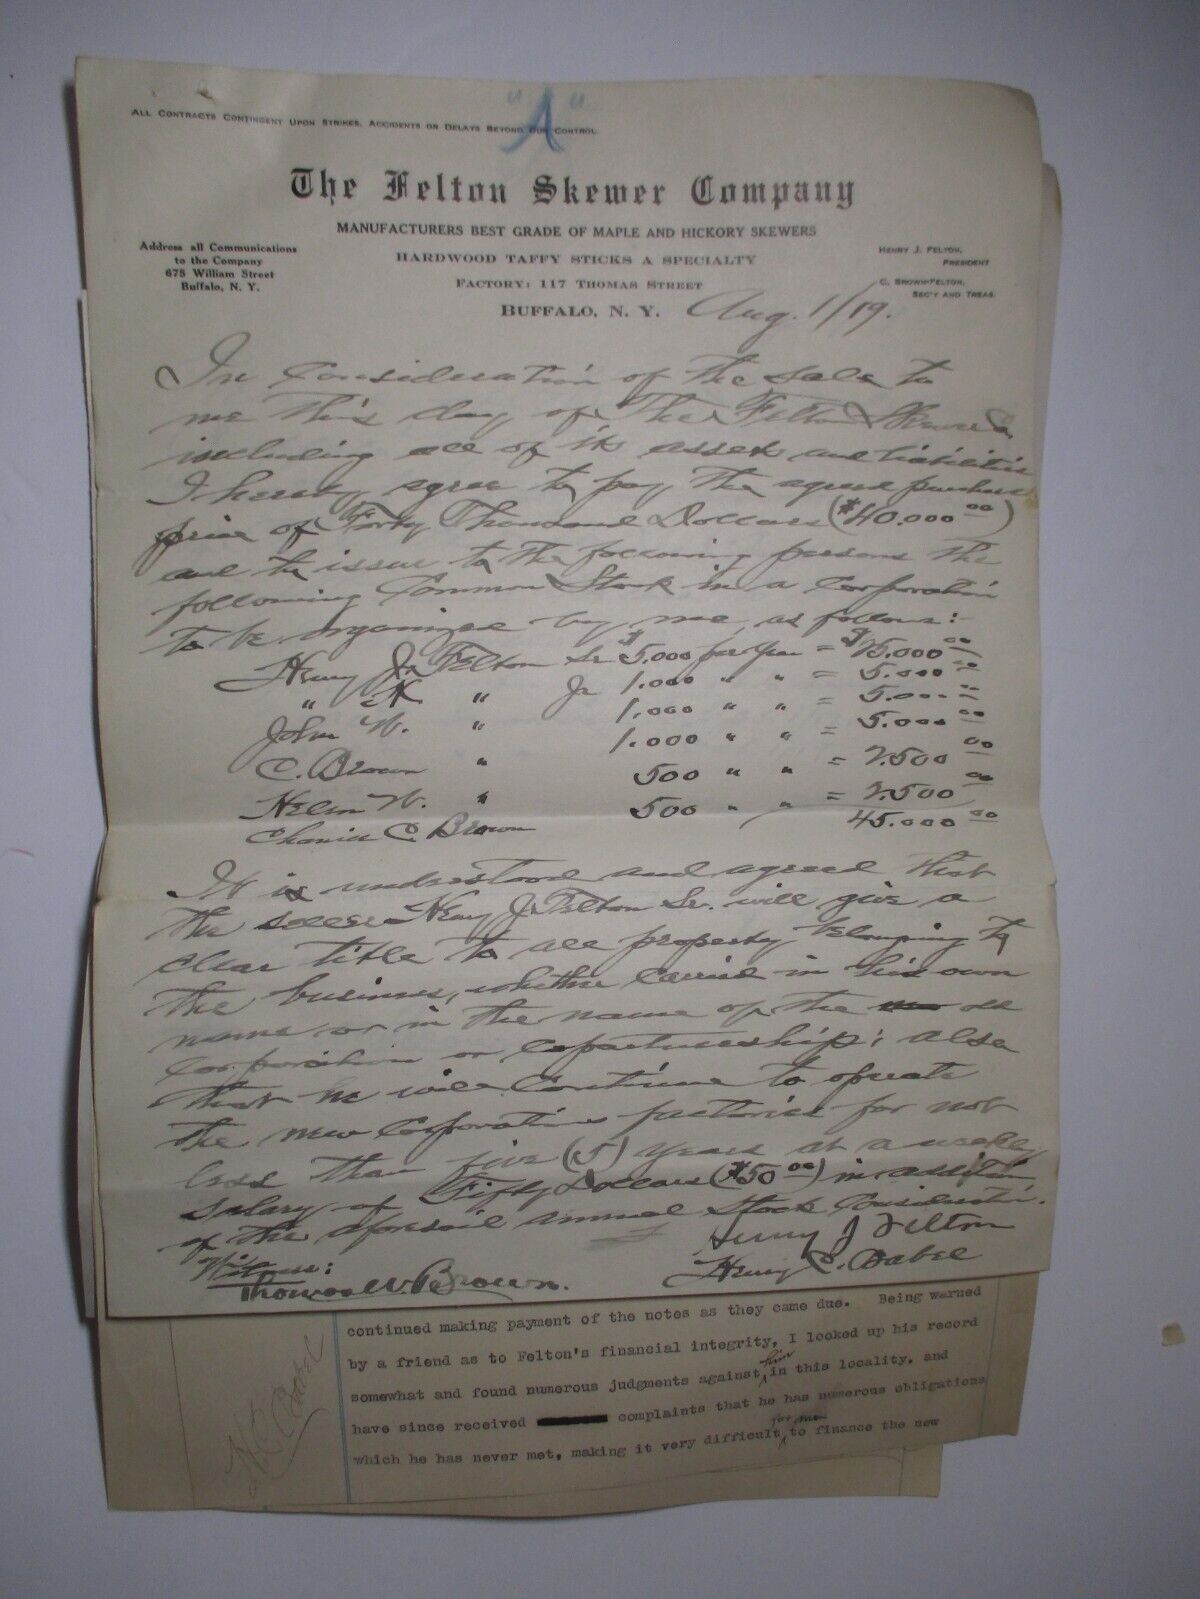 "A"
ALL CONTRACTS CONTINGENT UPON STRIKES, ACCIDENTS OR DELAYS BEYOND OUR CONTROL.
The Felton Skewer Company
MANUFACTURERS BEST GRADE OF MAPLE AND HICKORY SKEWERS
HARDWOOD TAFFY STICKS A SPECIALTY
FACTORY: 117 THOMAS STREET
Address all Communications
to the Company
675 William Street
Buffalo, N. Y.
HENRY J. FELTON,
PRESIDENT
C. BROWN-FELTON,
SEC'Y AND TREAS.
BUFFALO, N. Y. Aug. 1/19.
In Consideration of the sale to
me this day of The Felton Skewer Co.
including all of its assets and liabilities
I hereby agree to pay the agreed purchase
price of Forty Thousand Dollars ($40.000 00)
and to issue to the following persons the
following Common Stock in a Corporation
to be organized by me, as follows:-
Henry J. Felton Sr $5.000 per year = $25.000 00
" K " Jr 1.000 " " = 5.000 00
John W. " 1.000 " " = 5.000 00
C. Brown " 1.000 " " = 5.000 00
Helen W. " 500 " " = 2.500 00
Charles C. Brown 500 " " = 2.500 00
45.000 00
It is understood and agreed that
the seller Henry J. Felton Sr. will give a
clear title to all property belonging to
the business, whether carried in his own
name or in the name of the old
Corporation or copartnership; also
that he will continue to operate
the new Corporation factories for not
less than five (5) years at a weekly
salary of Fifty Dollars ($50 00) in addition
of the aforesaid annual stock consideration.
Henry J Felton
Witness: Henry C. Babel
Thomas W. Brown.
continued making payment of the notes as they came due. Being warned
by a friend as to Felton's financial integrity, I looked up his record
somewhat and found numerous judgments against him in this locality, and
have since received complaints that he has numerous obligations
which he has never met, making it very difficult for me to finance the new